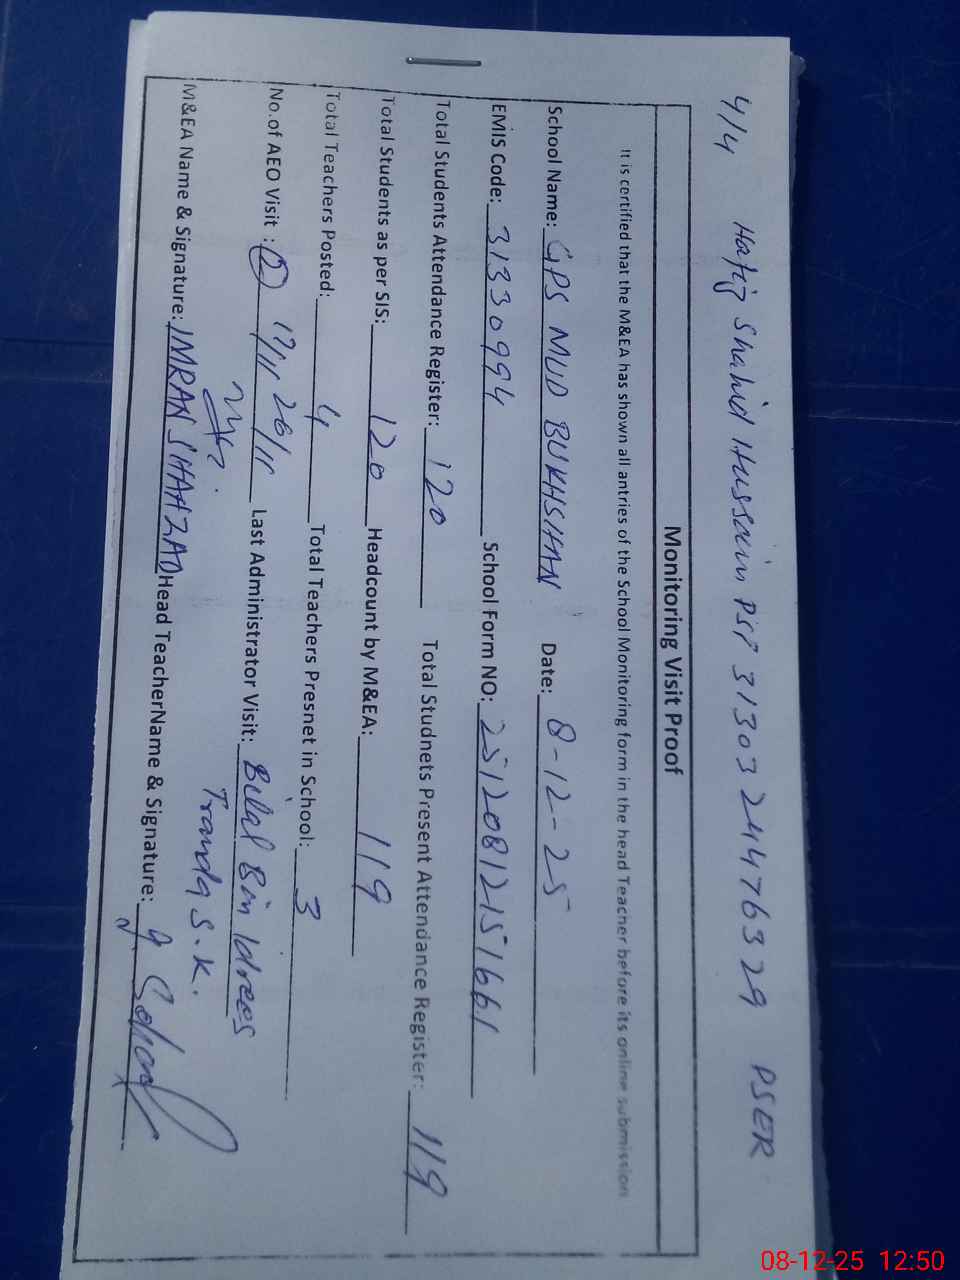 4/4 Hafiz Shahid Hussain PST 31303 2447632 9 PSER
Monitoring Visit Proof
It is certified that the M&EA has shown all antries of the School Monitoring form in the head Teacher before its online submission
School Name: GPS MUD BUKHSHAN Date: 8-12-25
EMIS Code: 31330994 School Form NO: 25120812151661
Total Students Attendance Register: 120 Total Studnets Present Attendance Register: 119
Total Students as per SIS: 120 Headcount by M&EA: 119
Total Teachers Posted: 4 Total Teachers Presnet in School: 3
No.of AEO Visit : (2) 17/11 26/11 Last Administrator Visit: Bilal Bin Idrees
Tranda S.K.
M&EA Name & Signature: IMRAN SHAHZAD Head TeacherName & Signature:
08-12-25 12:50